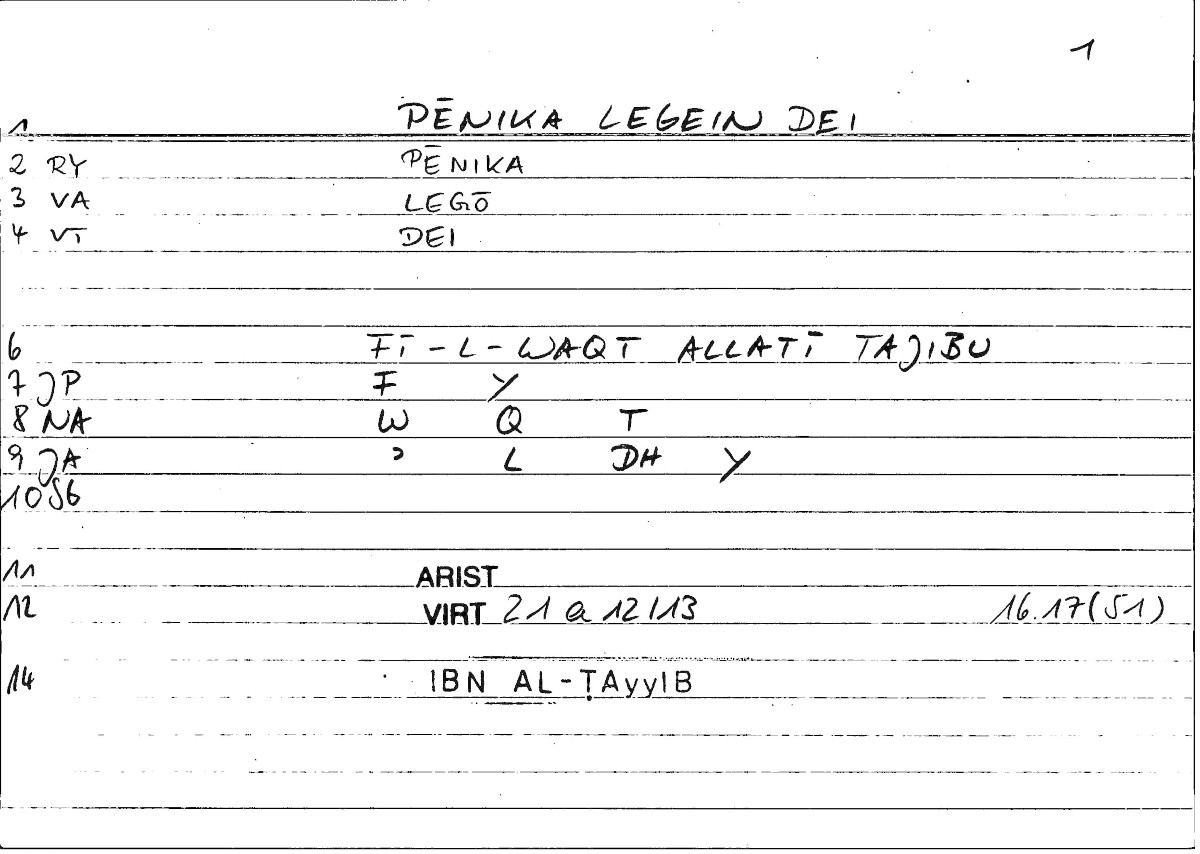 1
1 PĒNIKA LEGEIN DEI
2 RY PĒNIKA
3 VA LEGŌ
4 VT DEI
6 FĪ-L-WAQT ALLATĪ TAJIBU
7 JP F Y
8 NA W Q T
9 JA ʾ L DH Y
10 SG
11 ARIST
12 VIRT 21 a 12/13 16.17(51)
14 IBN AL-ṬAyyIB